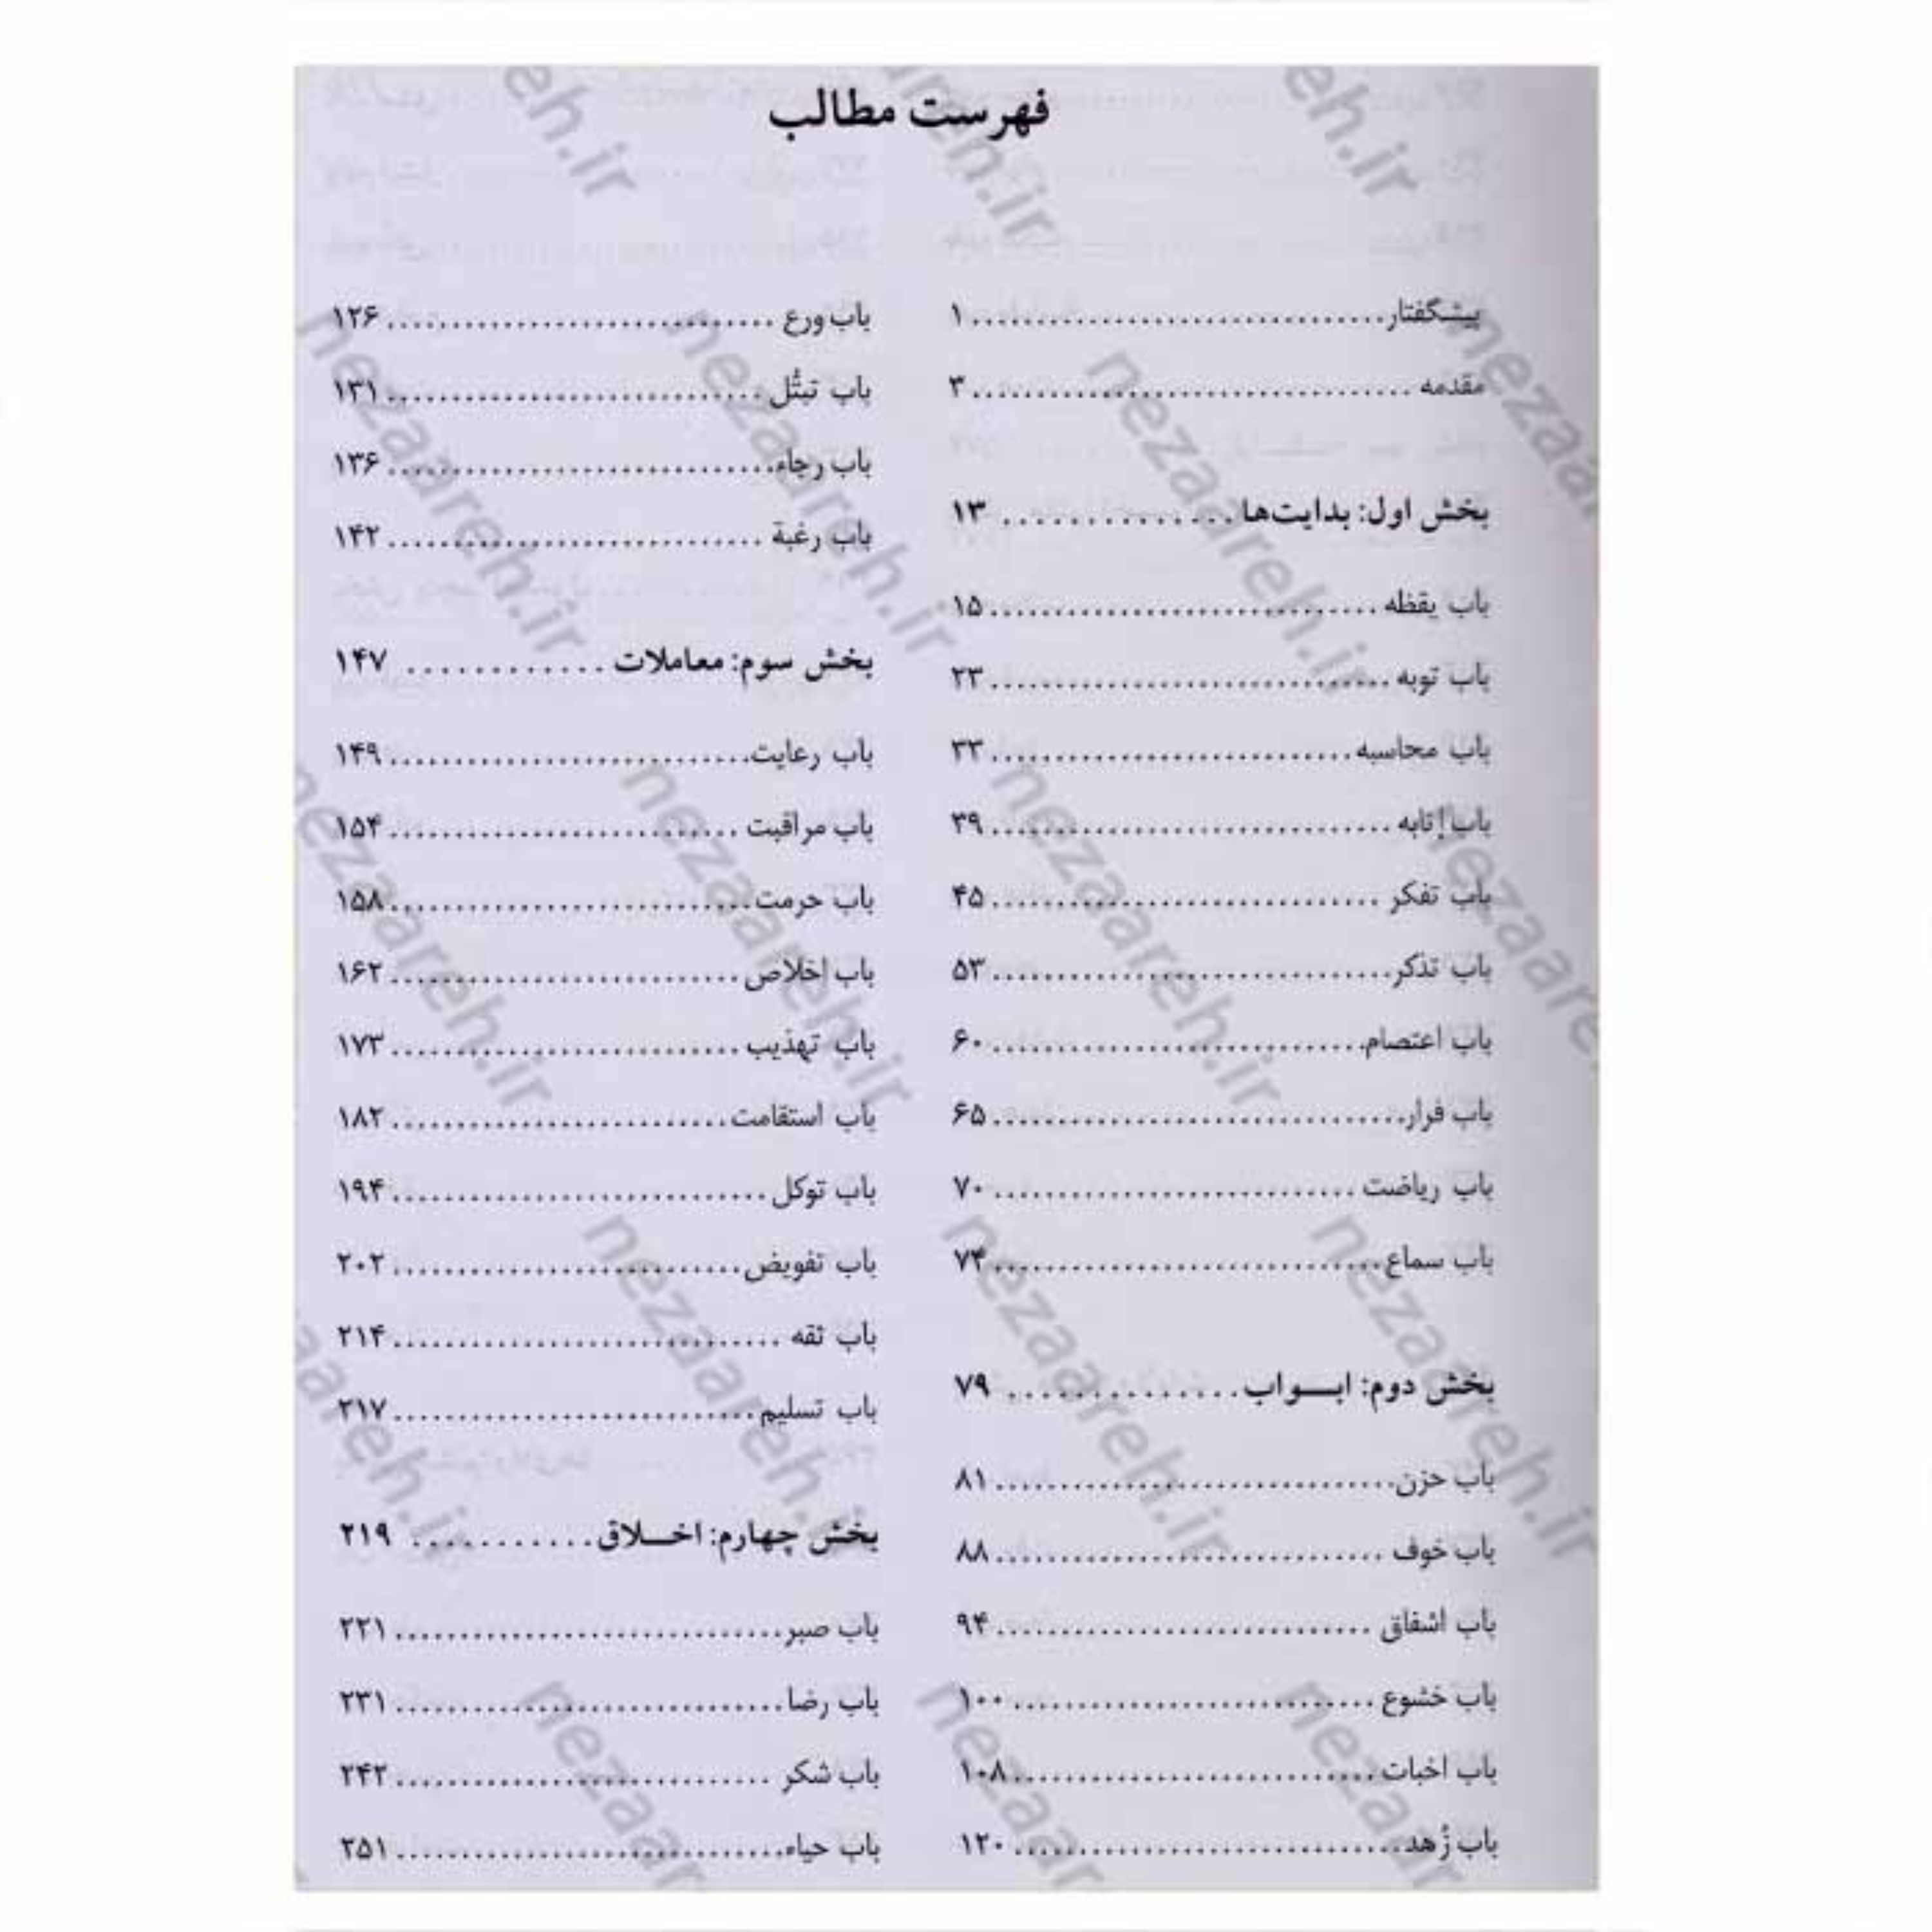 فهرست مطالب
پیشگفتار ۱
مقدمه ۳
بخش اول: بدایت‌ها ۱۳
باب یقظه ۱۵
باب توبه ۲۳
باب محاسبه ۳۳
باب إنابه ۳۹
باب تفکر ۴۵
باب تذکر ۵۳
باب اعتصام ۶۰
باب فرار ۶۵
باب ریاضت ۷۰
باب سماع ۷۴
بخش دوم: ابـــواب ۷۹
باب حزن ۸۱
باب خوف ۸۸
باب اشفاق ۹۴
باب خشوع ۱۰۰
باب اخبات ۱۰۸
باب زُهد ۱۲۰
باب ورع ۱۲۶
باب تبتُّل ۱۳۱
باب رجاء ۱۳۶
باب رغبة ۱۴۲
بخش سوم: معاملات ۱۴۷
باب رعایت ۱۴۹
باب مراقبت ۱۵۴
باب حرمت ۱۵۸
باب إخلاص ۱۶۲
باب تهذیب ۱۷۳
باب استقامت ۱۸۲
باب توکل ۱۹۴
باب تفویض ۲۰۲
باب ثقه ۲۱۴
باب تسلیم ۲۱۷
بخش چهارم: اخـــلاق ۲۱۹
باب صبر ۲۲۱
باب رضا ۲۳۱
باب شکر ۲۴۲
باب حیاء ۲۵۱
nezaareh.ir